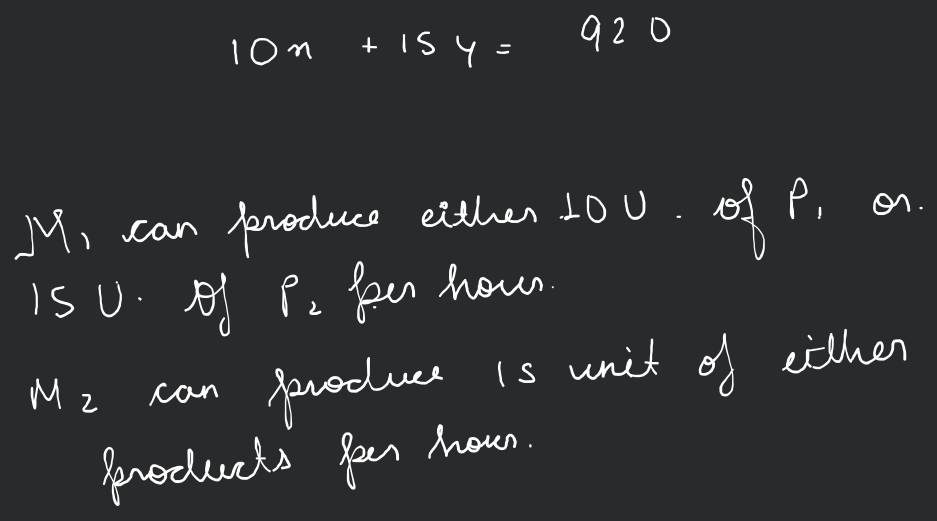 10x + 15y = 920
M₁ can produce either 10 U. of P₁ or.
15 U. of P₂ per hour.
M₂ can produce 15 unit of either
products per hour.